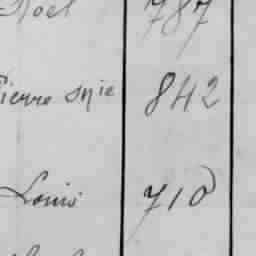 Noël 787
Pierre Mie 842
Louis 710